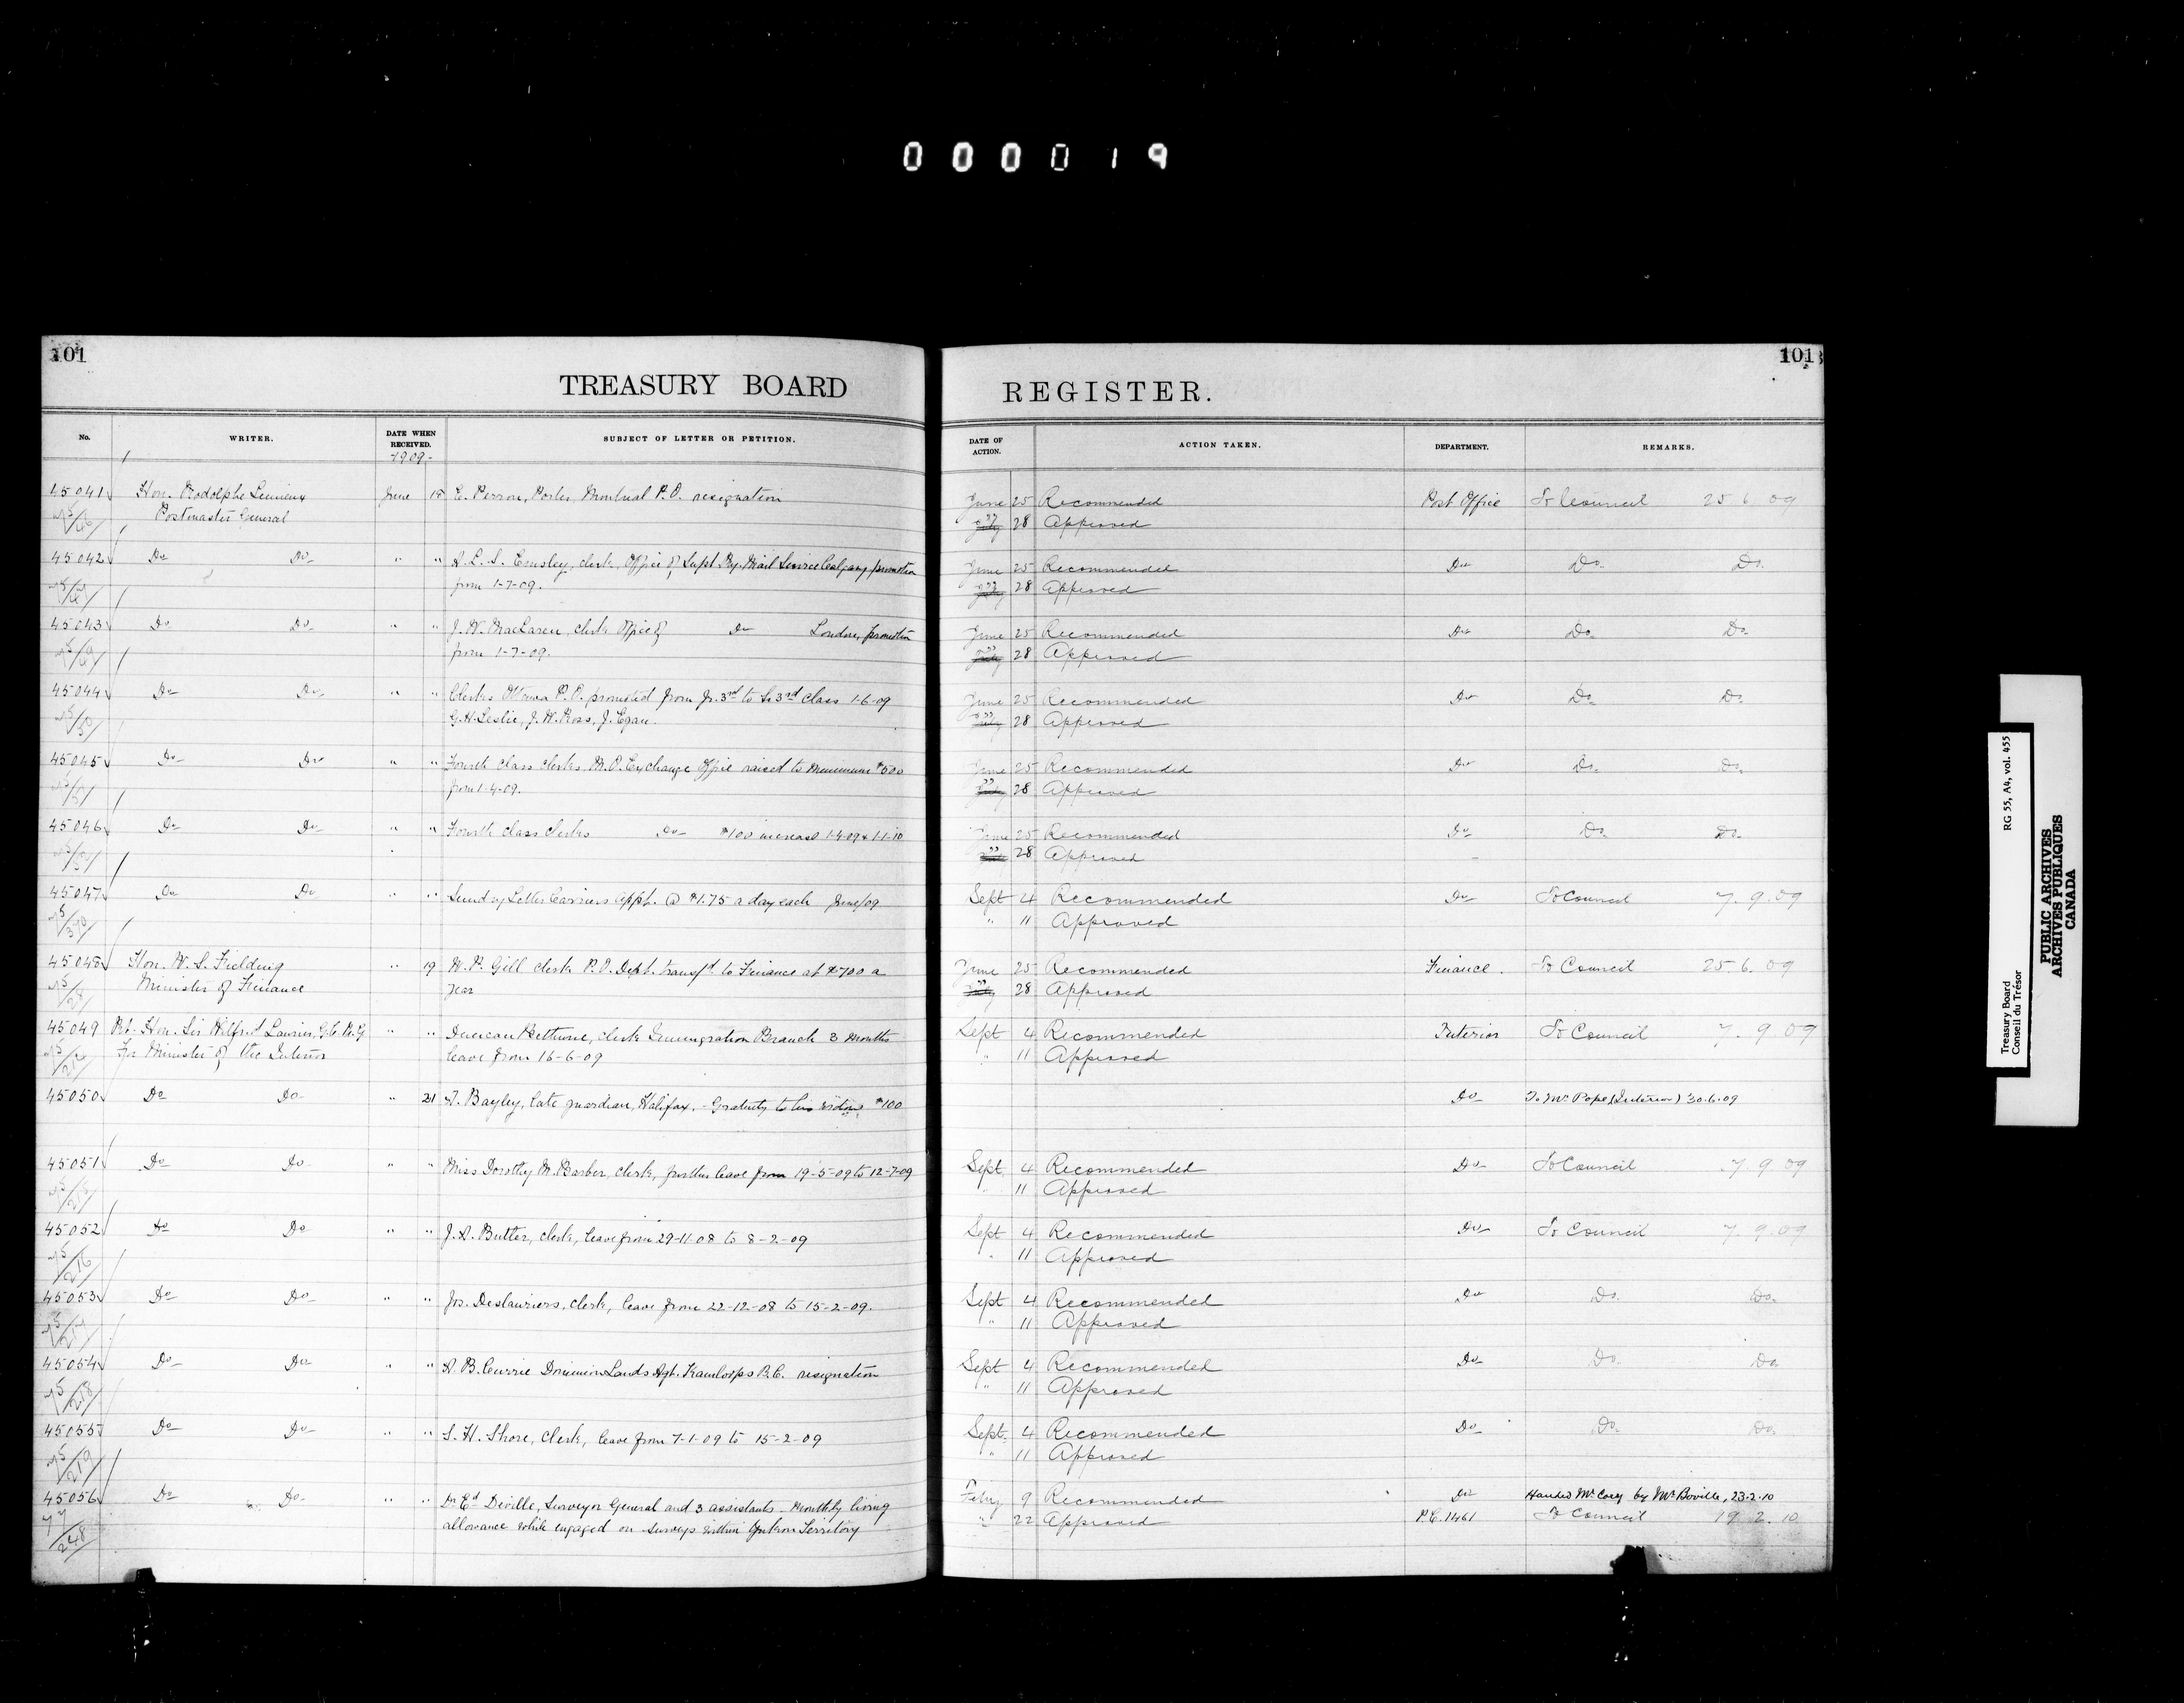 000019
101
101
TREASURY BOARD
REGISTER.
No.
WRITER.
DATE WHEN RECEIVED.
SUBJECT OF LETTER OR PETITION.
DATE OF ACTION.
ACTION TAKEN.
DEPARTMENT.
REMARKS.
1909-
45041 Hon. Rodolphe Lemieux June 18 E. Perron, Porter, Montreal P.O. resignation June 25 Recommended Post Office To Council 25.6.09
Postmaster General July 28 Approved
45042 Do Do " " A.L.S. Emsley, clerk, Office of Supt Ry. Mail Service Calgary promotion June 25 Recommended Do Do. Do.
from 1-7-09. July 28 Approved
45043 Do Do " " J.W. MacLaren, clerk Office of Do London, promotion June 25 Recommended Do Do. Do.
from 1-7-09. July 28 Approved
45044 Do Do " " Clerks Ottawa P.O. promoted from Jr. 3rd to Sr 3rd Class 1-6-09 June 25 Recommended Do Do. Do.
G.H. Leslie, J.W. Ross, J. Egan. July 28 Approved
45045 Do Do " " Fourth Class Clerks M.O. Exchange Office raised to Minimum $500 June 25 Recommended Do Do. Do.
from 1-4-09. July 28 Approved
45046 Do Do " " Fourth Class Clerks Do $100 increase 1-4-09 & 1-1-10 June 25 Recommended Do Do. Do.
July 28 Approved
45047 Do Do " " Sundry Letter Carriers appt. @ $1.75 a day each June/09 Sept 4 Recommended Do To Council 7.9.09
" 11 Approved
45048 Hon. W.S. Fielding " 19 W.P. Gill clerk P.O. Dept. transfd to Finance at $700 a June 25 Recommended Finance. To Council 25.6.09
Minister of Finance year July 28 Approved
45049 Rt. Hon. Sir Wilfrid Laurier, G.C.M.G " " Duncan Bethune, clerk Immigration Branch 3 Months Sept 4 Recommended Interior To Council 7.9.09
For Minister of the Interior leave from 16-6-09 " 11 Approved
45050 Do Do " 21 A. Bayley, late guardian, Halifax. - Gratuity to his widow, $100 Do To Mr Pope (Interior) 30.6.09
45051 Do Do " " Miss Dorothy M. Barber, clerk, further leave from 19-5-09 to 12-7-09 Sept. 4 Recommended Do To Council 7.9.09
" 11 Approved
45052 Do Do " " J.A. Butler, clerk, leave from 29-11-08 to 8-2-09 Sept 4 Recommended Do To Council 7.9.09
" 11 Approved
45053 Do Do " " Jos. Deslauriers, clerk, leave from 22-12-08 to 15-2-09. Sept 4 Recommended Do Do. Do.
" 11 Approved
45054 Do Do " " A.B. Currie Dominion Lands Agt. Kamloops B.C. resignation Sept 4 Recommended Do Do. Do
" 11 Approved
45055 Do Do " " S.H. Shore, clerk, leave from 7-1-09 to 15-2-09 Sept. 4 Recommended Do Do. Do.
" 11 Approved
45056 Do Do " " Dr Ed Deville, Surveyor General and 3 assistants - Monthly living Febry 9 Recommended Do Handed Mr Cory by Mr Boville, 23.2.10
allowance while engaged on surveys within Yukon Territory " 22 Approved P.C. 1461 To Council 19.2.10
Treasury Board RG 55, A4, vol. 455
Conseil du Trésor
PUBLIC ARCHIVES
ARCHIVES PUBLIQUES
CANADA